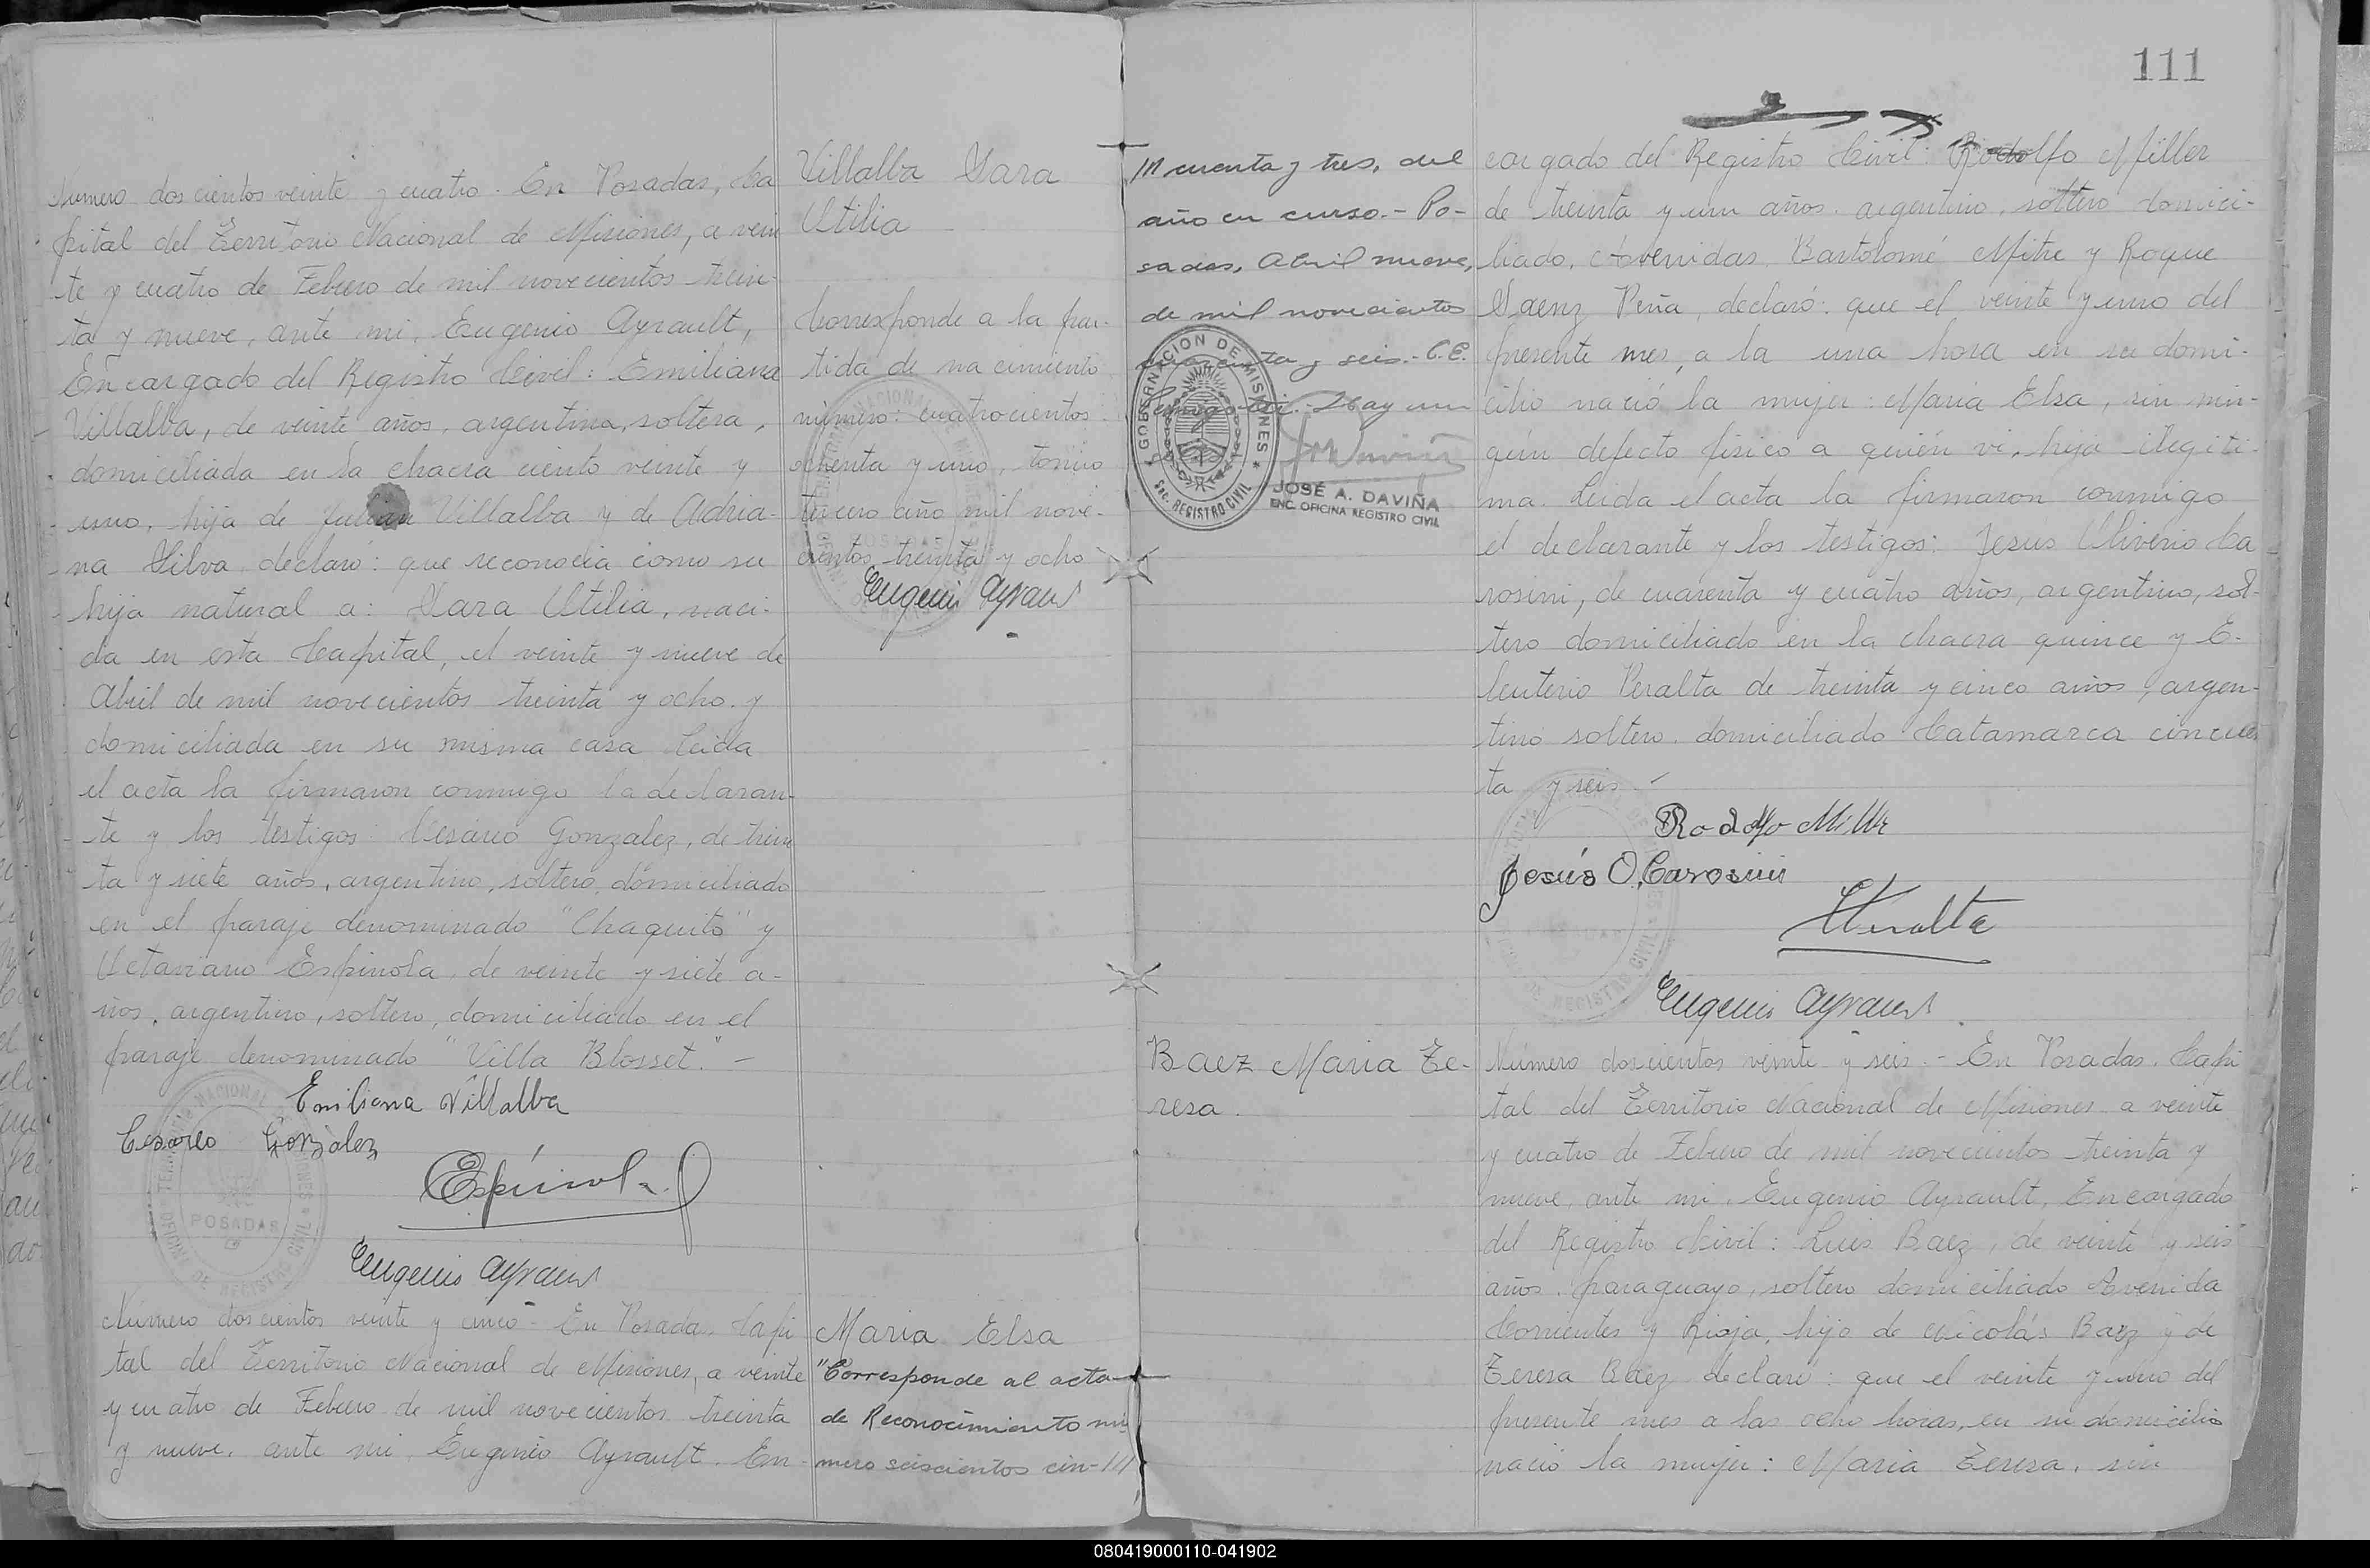 Número doscientos veinte y cuatro. En Posadas, Ca
pital del Territorio Nacional de Misiones, a vein
te y cuatro de Febrero de mil novecientos trein-
ta y nueve, ante mi, Eugenio Ayrault,
Encargado del Registro Civil: Emiliana
Villalba, de veinte años, argentina, soltera,
domiciliada en la chacra ciento veinte y
uno, hija de Julian Villalba y de Adria-
na Silva, declaró: que reconocia como su
hija natural a: Sara Otilia, naci-
da en esta Capital, el veinte y nueve de
Abril de mil novecientos treinta y ocho y
domiciliada en su misma casa Leida
el acta la firmaron conmigo la declaran-
te y los testigos: Cesáreo Gonzalez, de trein
ta y siete años, argentino, soltero, domiciliado
en el paraje denominado "Chaquito" y
Octaviano Espinola, de veinte y siete a-
ños, argentino, soltero, domiciliado en el
paraje denominado "Villa Blosset." -
Emiliana Villalba
Cesareo Gonzalez
Espínola
Eugenio Ayrault
POSADAS
Villalba Sara
Otilia
Corresponde a la par-
tida de nacimiento
número: cuatrocientos
ochenta y uno, tomo
tercero año mil nove-
cientos treinta y ocho
Eugenio Ayrault
Número doscientos veinte y cinco - En Posadas, Capi
tal del Territorio Nacional de Misiones, a veinte
y cuatro de Febrero de mil novecientos treinta
y nueve, ante mi, Eugenio Ayrault. En-
Maria Elsa
"Corresponde al acta
de Reconocimiento nú
mero seiscientos cin-///
111
/// cuenta y tres, del
año en curso.- Po-
sadas, Abril nueve,
de mil novecientos
cuarenta y seis.- C.C.
Hay un
GOBERNACION DE MISIONES
Sec. REGISTRO CIVIL
JOSÉ A. DAVIÑA
ENC. OFICINA REGISTRO CIVIL
cargado del Registro Civil: Rodolfo Miller
de treinta y un años, argentino, soltero domici-
liado, Avenidas Bartolomé Mitre y Roque
Saenz Peña, declaró: que el veinte y uno del
presente mes, a la una hora en su domi-
cilio nació la mujer: Maria Elsa, sin nin-
gun defecto fisico a quién vi, hija ilegiti-
ma. Leida el acta la firmaron conmigo
el declarante y los testigos: Jesus Oliverio Ca
rosini, de cuarenta y cuatro años, argentino, sol-
tero domiciliado en la chacra quince y E-
leuterio Peralta de treinta y cinco años, argen-
tino soltero domiciliado Catamarca cincuen
ta y seis.-
Rodolfo Miller
Jesús O. Carosini
EPeralta
Eugenio Ayrault
Baez Maria Te-
resa.
Número doscientos veinte y seis.- En Posadas, Capi
tal del Territorio Nacional de Misiones a veinte
y cuatro de Febrero de mil novecientos treinta y
nueve, ante mi, Eugenio Ayrault, Encargado
del Registro Civil: Luis Baez, de veinte y seis
años, paraguayo, soltero domiciliado Avenida
Corrientes y Rioja, hijo de Nicolás Baez y de
Teresa Baez declaró: que el veinte y uno del
presente mes a las ocho horas, en su domicilio
nació la mujer: Maria Teresa, sin
080419000110-041902